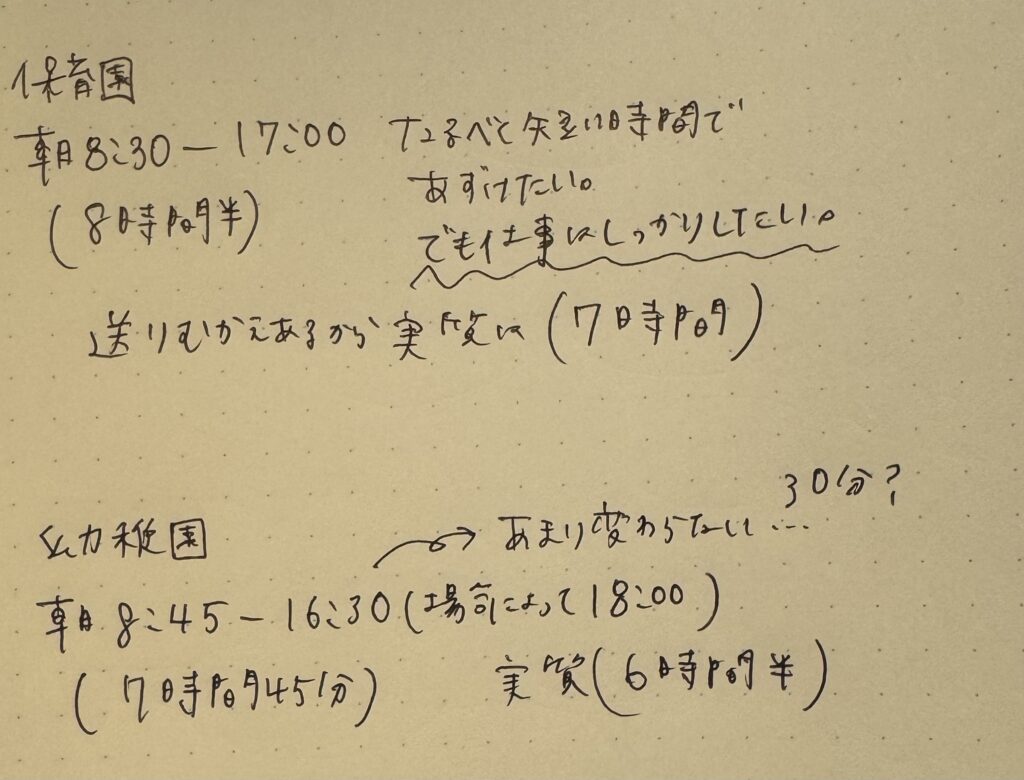 保育園
朝8:30-17:00 なるべく短い時間で
あずけたい。
(8時間半)
でも仕事はしっかりしたい。
送りむかえあるから実質は(7時間)
30分?
幼稚園
あまり変わらない…
朝8:45-16:30(場所によって18:00)
(7時間45分) 実質(6時間半)